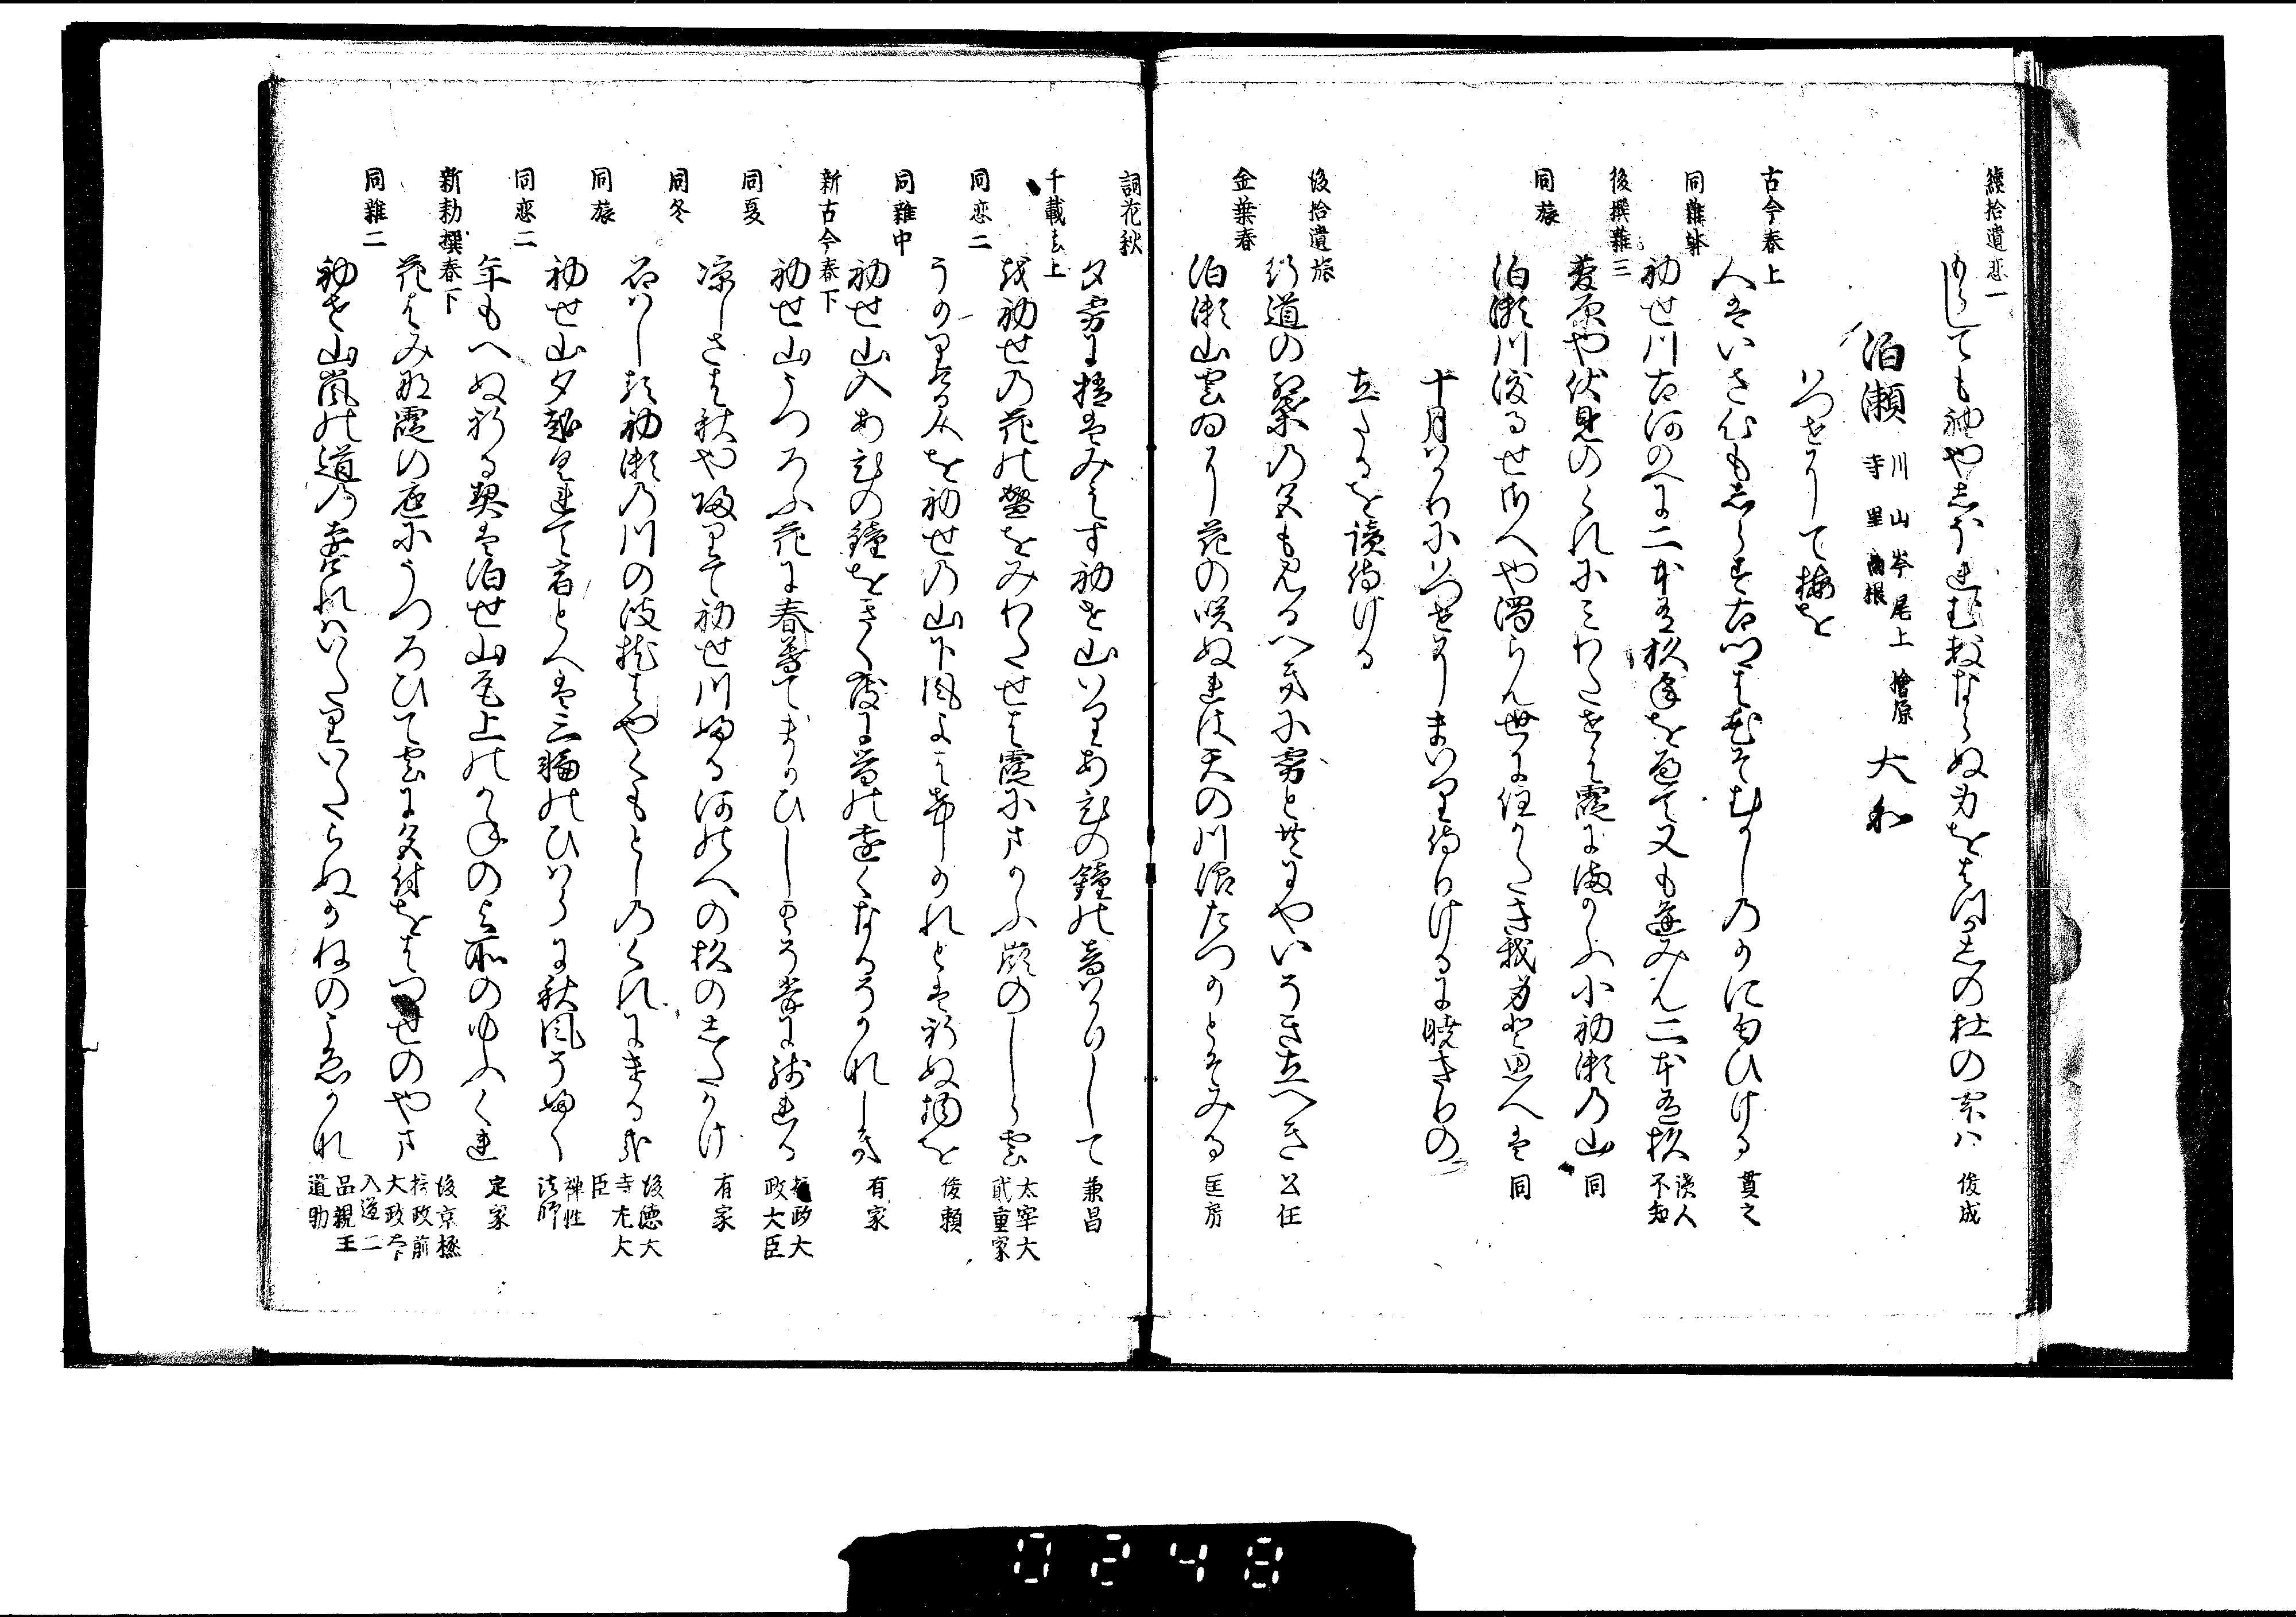 續拾遺恋一
もらしても袖やしほれむ数ならぬ身をはつかしの杜の雫は 俊成
泊瀬 川 山 岑 尾上 檜原 寺 里 大和
はつせにて梅を
古今春上
人はいさ心もしらす古郷は花そむかしのかに匂ひける 貫之
同雜躰
初せ川古河のへに二本有杉年を過て又も逢みん二本有杉 讀人不知
後撰雜三
菅原や伏見のくれにみわたせは霞にまかふ小初瀬の山 同
同旅
泊瀬川渡るせさへや濁らん世に住かたき我身と思へは 同
十月はかりにはつせにまいり侍りけるに暁きりの
立たるを讀侍ける
後拾遺旅
行道の紅葉の色も見るへきに霧と共にやいそき立へき 公任
金葉春
泊瀬山雲ゐに花の咲ぬれは天の川浪たつかとそみる 匡房
詞花秋
夕霧に梢もみえす初せ山いりあひの鐘の音はかりして 兼昌
千載春上
をはつせの花の盛をみわたせは霞にまかふ嶺のしら雲 太宰大貳重家
同恋二
うかりける人を初せの山下風よはけしかれとは祈ぬ物を 俊頼
同雜中
初せ山入あひの鐘をきく度に昔の遠くなるそかなしき 有家
新古今春下
初せ山うつろふ花に春暮てまかひし雲そ峯に残れる 摂政大政大臣
同夏
凉しさは秋や歸りて初せ川ふる河のへの杉のしたかけ 有家
同冬
石はしる初瀬の川の波枕はやくもとしのくれにける哉 後徳大寺左大臣
同旅
初せ山夕越くれて宿とへは三輪のひはらに秋風そ吹 禅性法師
同恋二
年もへぬ祈る契は泊せ山尾上のかねのよ所のゆふくれ 定家
新勅撰春下
花はみな霞の底にうつろひて雲に色付をはつせのやま 後京極摂政前大政大臣
同雜二
初せ山嵐の道の遠けれはいたりいたらぬかねのこゑかな 入道二品親王道助
0248